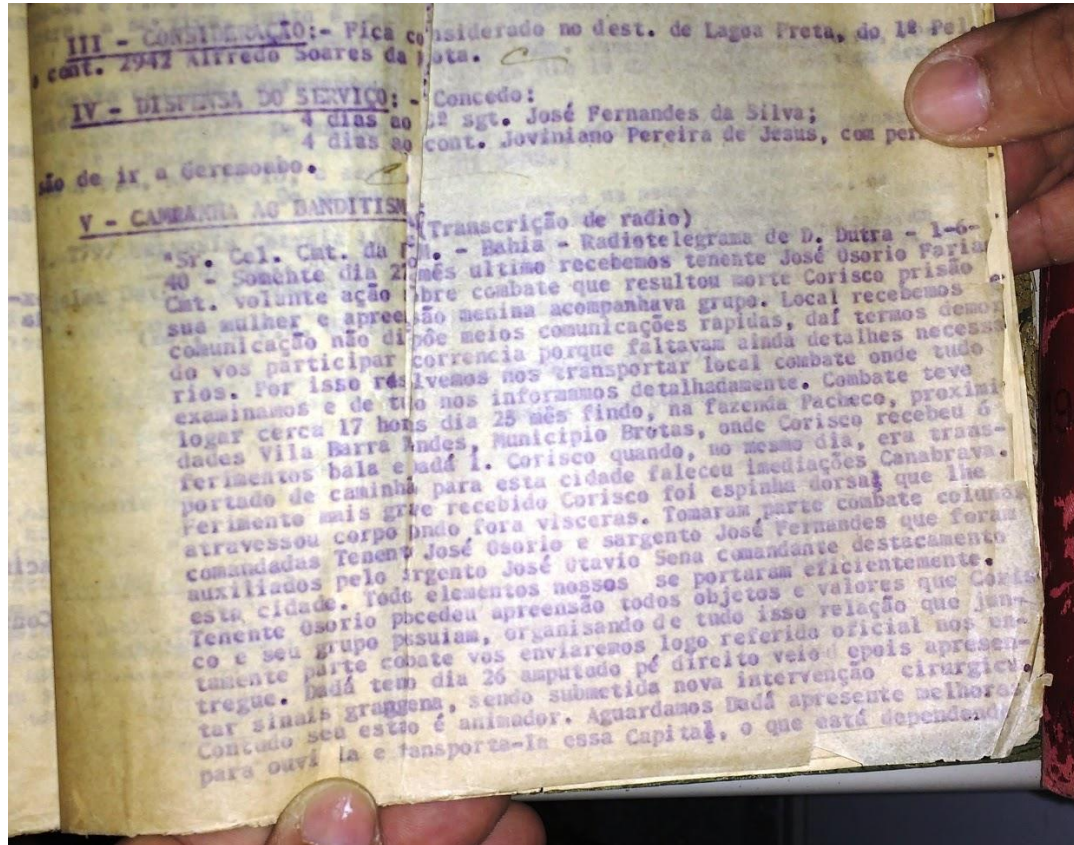 III - CONSIDERAÇÃO:- Fica considerado no dest. de Lagoa Preta, do 1º Pel
o cont. 2942 Alfredo Soares da Mota.
IV - DISPENSA DO SERVIÇO: - Concedo:
4 dias ao 2º sgt. José Fernandes da Silva;
4 dias ao cont. Joviniano Pereira de Jesus, com per
são de ir a Geremoabo.
V - CAMPANHA AO BANDITISM
(Transcrição de radio)
"Sr. Cel. Cmt. da M. - Bahia - Radiotelegrama de D. Dutra - 1-6-
40 - Somente dia 27 mês ultimo recebemos tenente José Osorio Faria
Cmt. volante ação bre combate que resultou morte Corisco prisão
sua mulher e apreensão menina acompanhava grupo. Local recebemos
comunicação não dispõe meios comunicações rapidas, daí termos demo
do vos participar correncia porque faltavam ainda detalhes necessa
rios. Por isso reslvemos nos transportar local combate onde tudo
examinamos e de tuo nos informamos detalhadamente. Combate teve
logar cerca 17 hors dia 25 mês findo, na fazenda Pacheco, proximi
dades Vila Barra endes, Municipio Brotas, onde Corisco recebeu 6
ferimentos bala e badá 1. Corisco quando, no mesmo dia, era trans-
portado de caminhã para esta cidade faleceu imediações Canabrava.
Ferimento mais grve recebido Corisco foi espinha dorsal que lhe
atravessou corpo ondo fora visceras. Tomaram parte combate colunas
comandadas Tenent José Osorio e sargento José Fernandes que foram
auxiliados pelo rgento José Otavio Sena comandante destacamento
esta cidade. Tods elementos nossos se portaram eficientemente.
Tenente Osorio pocedeu apreensão todos objetos e valores que Coris
co e seu grupo pssuiam, organisando de tudo isso relação que jun-
tamente parte cobate vos enviaremos logo referida oficial nos en-
tregue. Dadá teve dia 26 amputado pé direito veio depois apresen
tar sinais grangena, sendo submetida nova intervenção cirurgica.
Contudo seu estão é animador. Aguardamos Dadá apresente melhoras
para ouvi la e tansporta-la essa Capital, o que está dependend